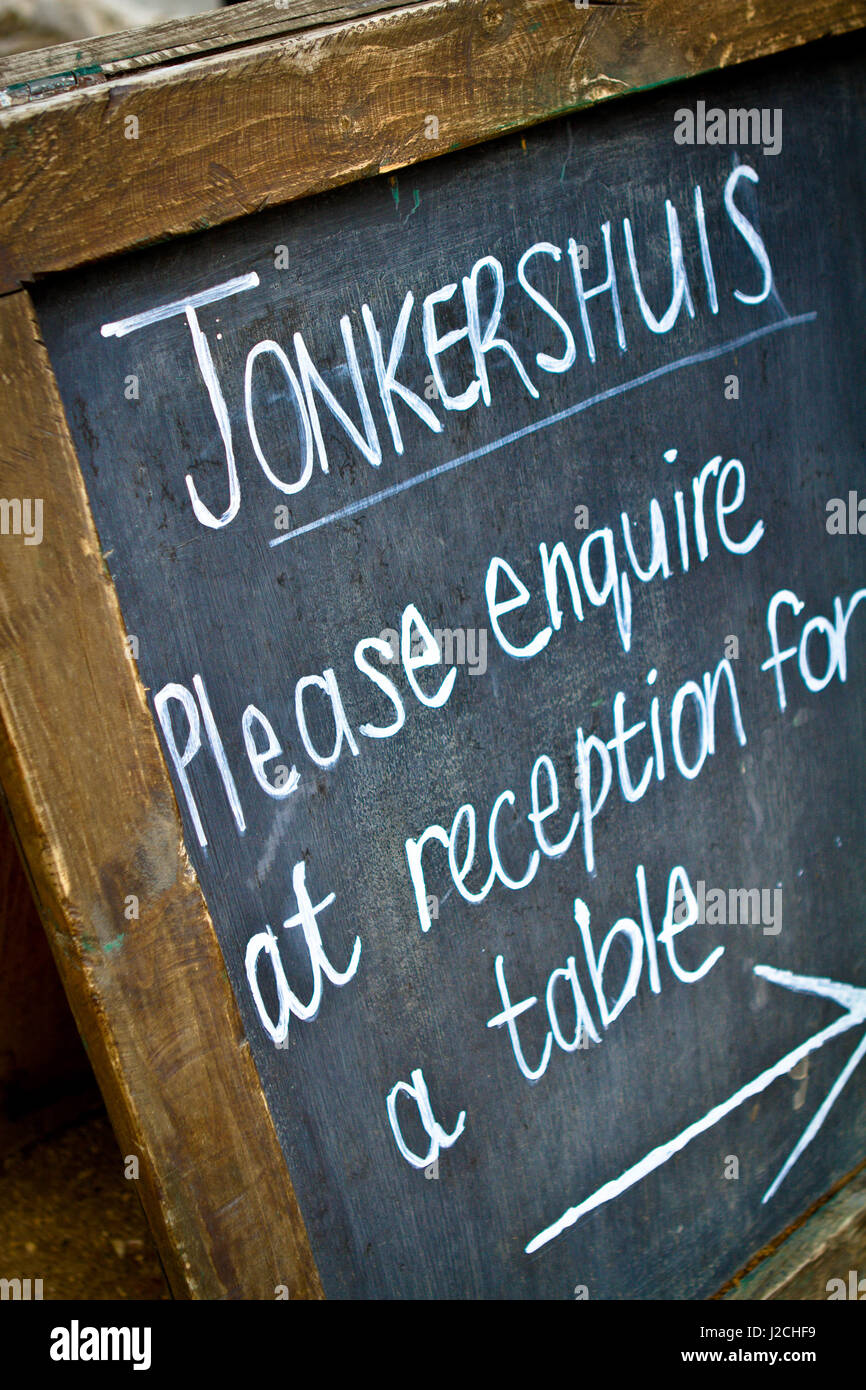 JONKERSHUIS
Please enquire
at reception for
a table
alamy stock photo
Image ID: J2CHF9
www.alamy.com